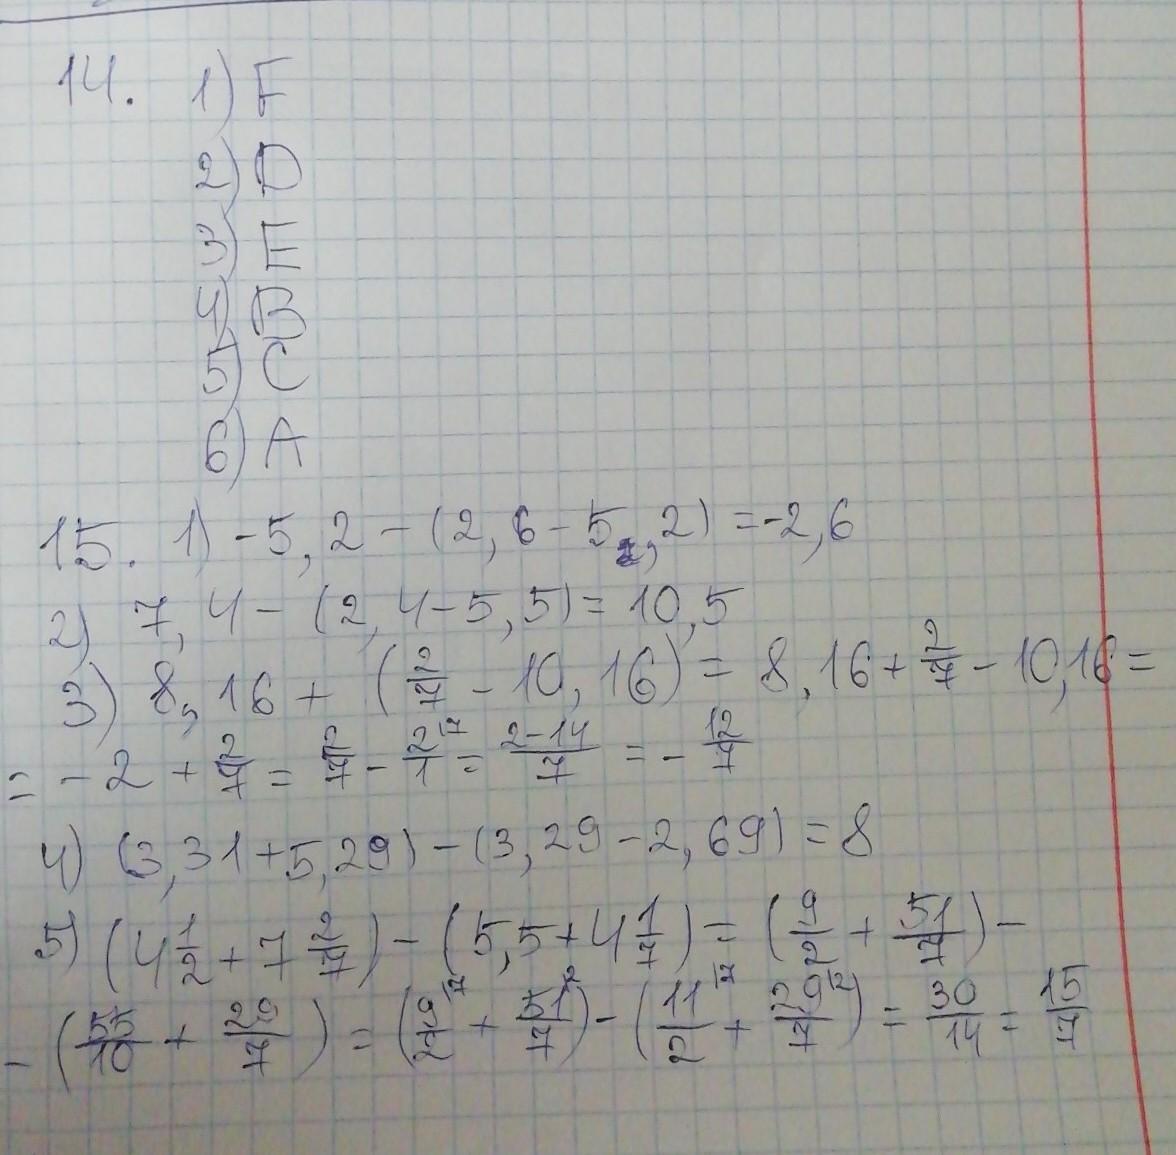 14. 1) F
2) D
3) E
4) B
5) C
6) A
15. 1) -5,2 - (2,6 - 5,2) = -2,6
2) 7,4 - (2,4 - 5,5) = 10,5
3) 8,16 + (2/7 - 10,16) = 8,16 + 2/7 - 10,16 =
= -2 + 2/7 = 2/7 - 2/1 |7 = 2-14/7 = - 12/7
4) (3,31 + 5,29) - (3,29 - 2,69) = 8
5) (4 1/2 + 7 2/7) - (5,5 + 4 1/7) = (9/2 + 51/7) -
- (55/10 + 29/7) = (9/2 |7 + 51/7 |2) - (11/2 |7 + 29/7 |2) = 30/14 = 15/7